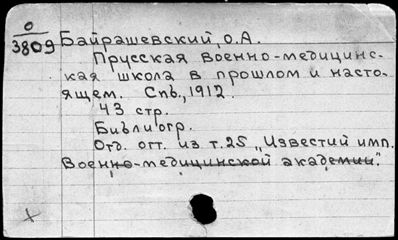 0
3809
Байрашевский, О.А.
Прусская военно-медицинс-
кая школа в прошлом и насто-
ящем. Спб., 1912.
43 стр.
Библиогр.
Отд. отт. из т.25 „Известий имп.
Военно-медицинской академии".